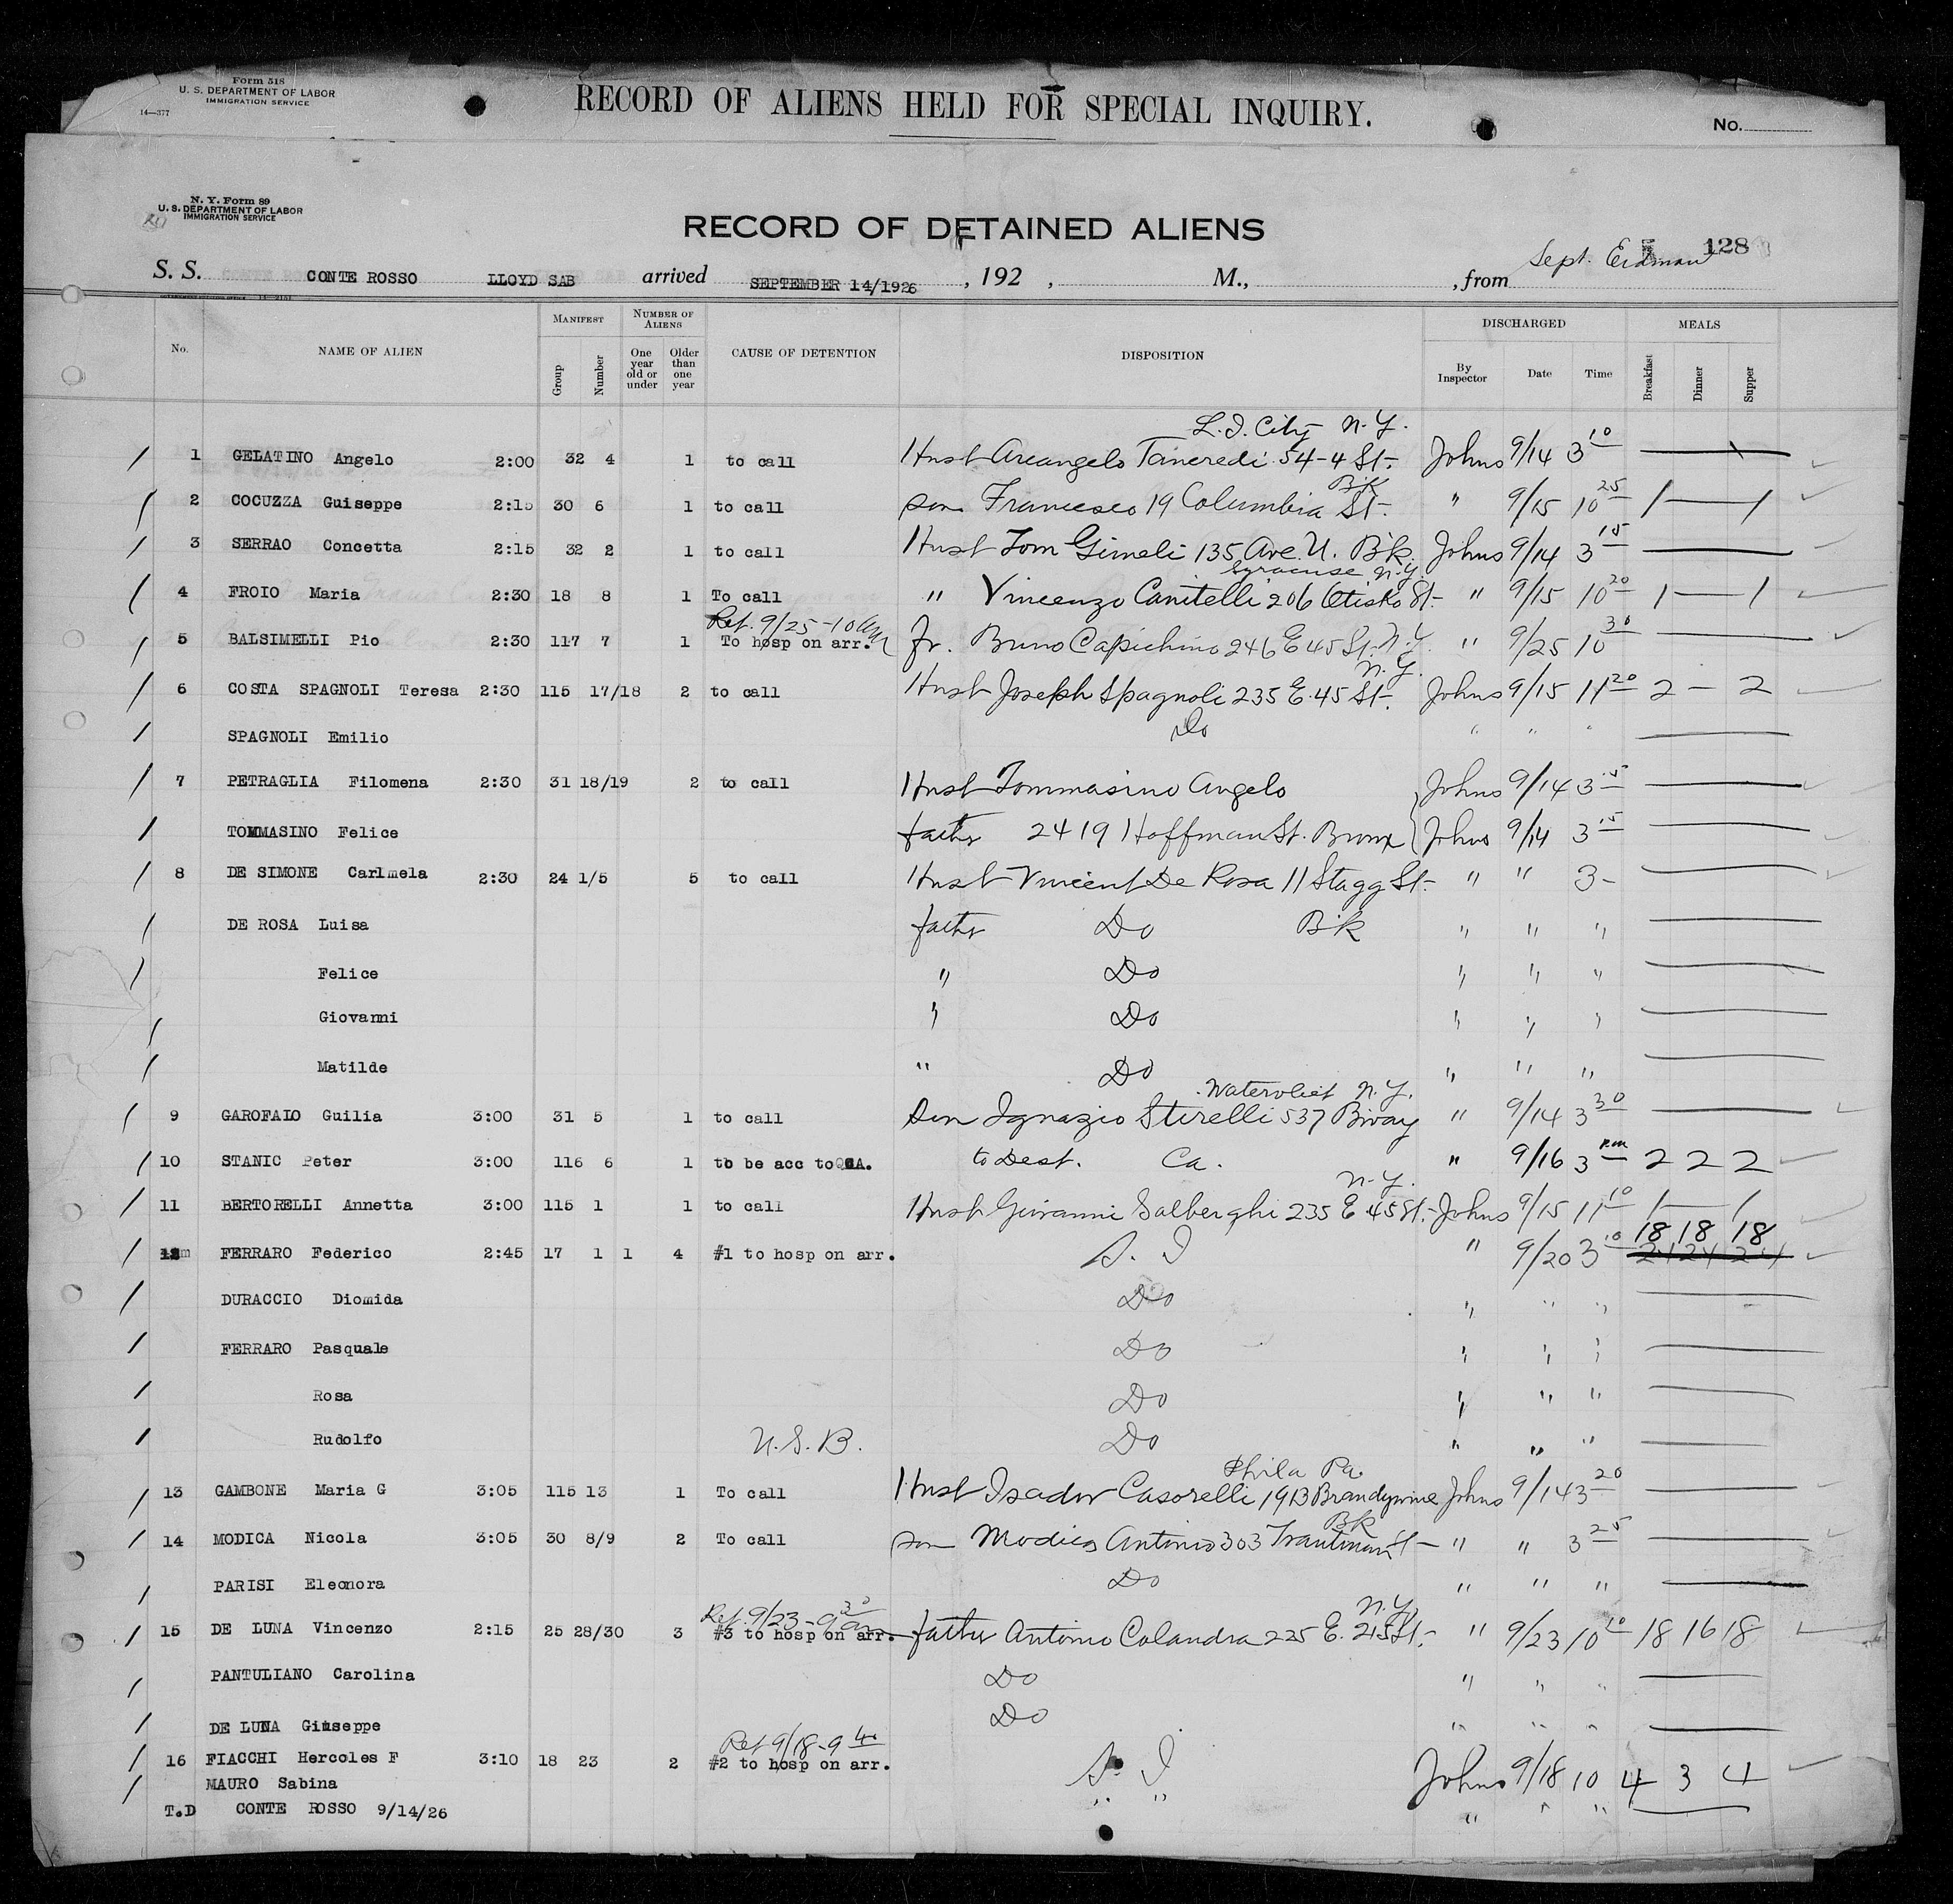 Form 518
U. S. DEPARTMENT OF LABOR
IMMIGRATION SERVICE
14—377
RECORD OF ALIENS HELD FOR SPECIAL INQUIRY.
No.
N. Y. Form 89
U. S. DEPARTMENT OF LABOR
IMMIGRATION SERVICE
RECORD OF DETAINED ALIENS
128
S. S. CONTE ROSSO LLOYD SAB arrived SEPTEMBER 14/1926, 192 , M., , from Sept. Erdman
No. NAME OF ALIEN MANIFEST Group Number NUMBER OF ALIENS One year old or under Older than one year CAUSE OF DETENTION DISPOSITION DISCHARGED By Inspector Date Time MEALS Breakfast Dinner Supper
L. I. City N. Y.
1 GELATINO Angelo 2:00 32 4 1 to call Husb Arcangelo Tancredi 54-4 St. Johns 9/14 3 10
Bk
2 COCUZZA Guiseppe 2:15 30 6 1 to call son Francesco 19 Columbia St. " 9/15 10 25 1 — 1
3 SERRAO Concetta 2:15 32 2 1 to call Husb Tom Gimeli 135 Ave. U. Bk. Johns 9/14 3 15
Syracuse N.Y.
4 FROIO Maria 2:30 18 8 1 To call " Vincenzo Canitelli 206 Otisko St. " 9/15 10 20 1 — 1
Ret. 9/25-10 am
5 BALSIMELLI Pio 2:30 117 7 1 To hosp on arr. Fr. Bruno Capichino 246 E 45 St. N.Y. " 9/25 10 30
N.Y.
6 COSTA SPAGNOLI Teresa 2:30 115 17/18 2 to call Husb Joseph Spagnoli 235 E. 45 St. Johns 9/15 11 20 2 — 2
SPAGNOLI Emilio Do " " "
7 PETRAGLIA Filomena 2:30 31 18/19 2 to call Husb Tommasino Angelo Johns 9/14 3 15
TOMMASINO Felice father 2419 Hoffman St. Bronx Johns 9/14 3 15
8 DE SIMONE Carlmela 2:30 24 1/5 5 to call Husb Vincent De Rosa 11 Stagg St. " " 3-
DE ROSA Luisa father Do Bk " " "
Felice " Do " " "
Giovanni " Do " " "
Matilde " Do " " "
Watervliet N.Y.
9 GAROFALO Guilia 3:00 31 5 1 to call Son Ignazio Stirelli 537 Bway " 9/14 3 30
10 STANIC Peter 3:00 116 6 1 to be acc to CA. to Dest. Ca. " 9/16 3 PM 2 2 2
N.Y.
11 BERTORELLI Annetta 3:00 115 1 1 to call Husb Giovanni Salberghi 235 E 45 St. Johns 9/15 11 10 1 — 1
18 18 18
12 FERRARO Federico 2:45 17 1 1 4 #1 to hosp on arr. S. I " 9/20 3 10 24 24 24
DURACCIO Diomida Do " " "
FERRARO Pasquale Do " " "
Rosa Do " " "
Rudolfo U.S.B. Do " " "
Phila Pa.
13 GAMBONE Maria G 3:05 115 13 1 To call Husb Isador Casorelli 1913 Brandywine Johns 9/14 3 20
Bk
14 MODICA Nicola 3:05 30 8/9 2 To call son Modica Antonio 303 Trautman St - " " 3 25
PARISI Eleonora Do " " "
Ret. 9/23-9 30 am N.Y.
15 DE LUNA Vincenzo 2:15 25 28/30 3 #3 to hosp on arr. father Antonio Calandra 225 E. 21 St. " 9/23 10 10 18 16 18
PANTULIANO Carolina Do " " "
DE LUNA Giuseppe Do " " "
Ret 9/18-9 40
16 FIACCHI Hercoles F 3:10 18 23 2 #2 to hosp on arr. S. I Johns 9/18 10 4 3 4
MAURO Sabina " " " " "
T.D CONTE ROSSO 9/14/26